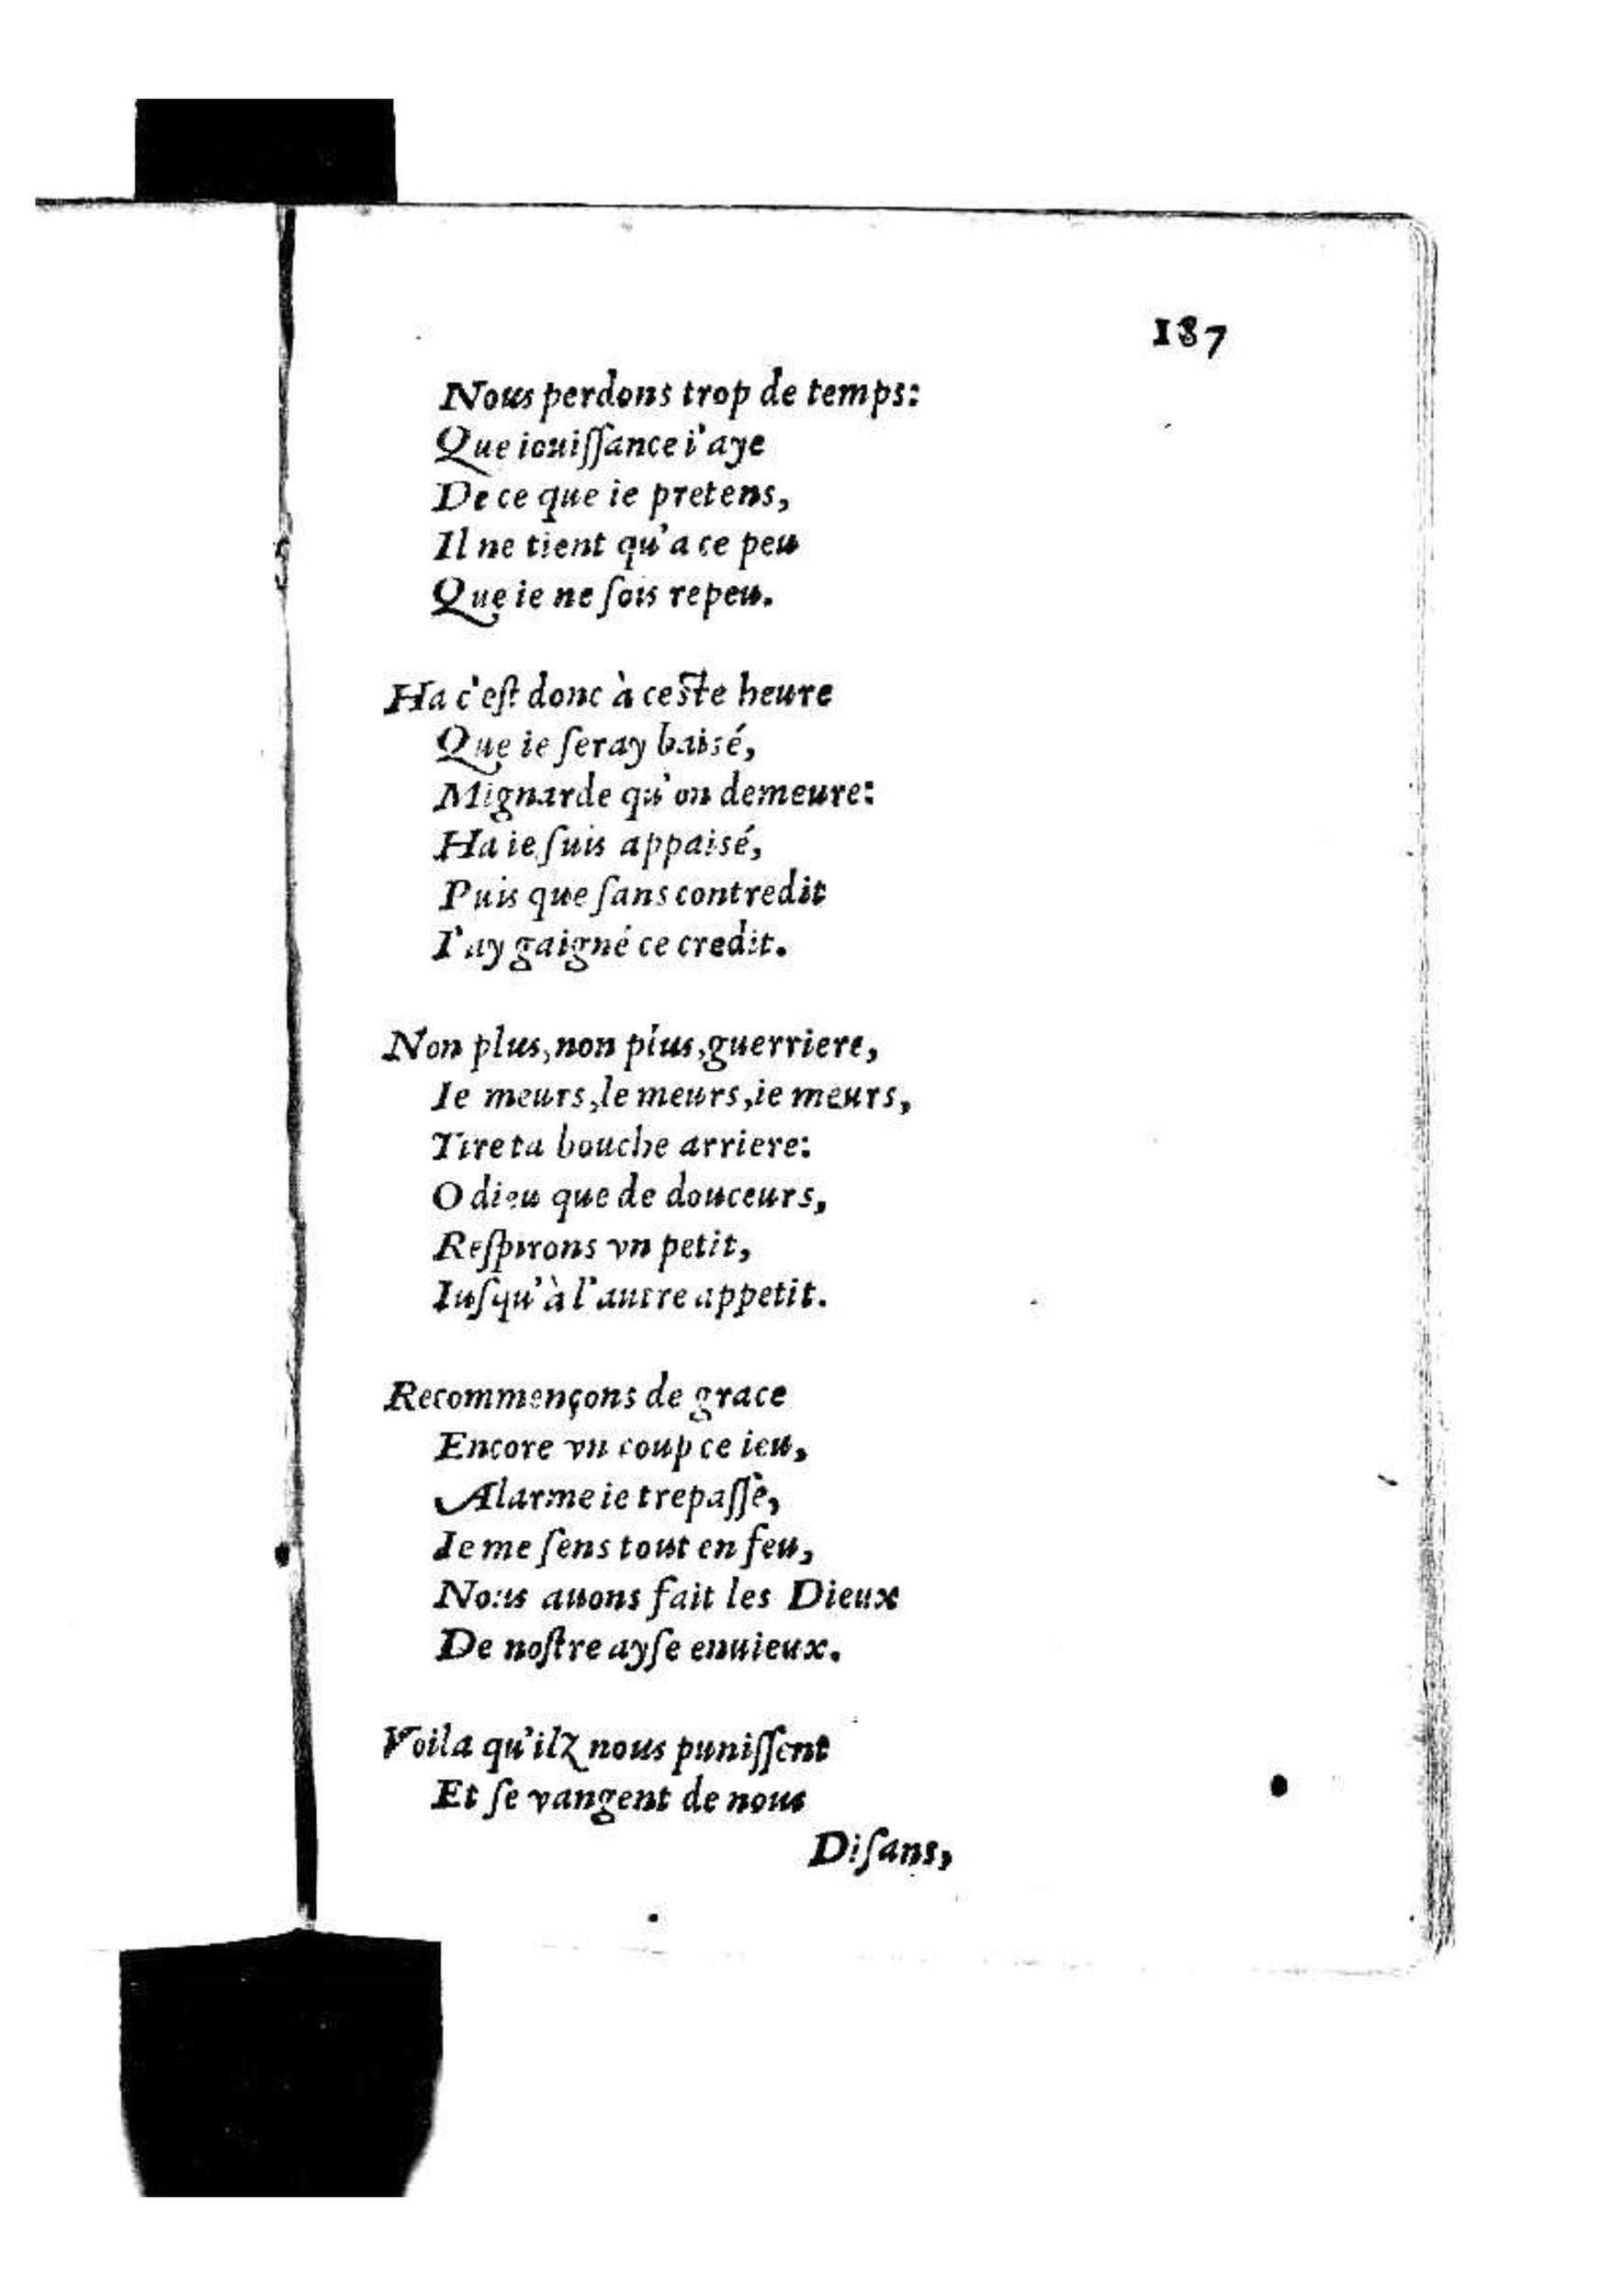 187
Nous perdons trop de temps:
Que iouiſſance i'aye
De ce que ie pretens,
Il ne tient qu'a ce peu
Que ie ne ſois repeu.
Ha c'eſt donc à ceſte heure
Que ie ſeray baisé,
Mignarde qu'on demeure:
Ha ie ſuis appaisé,
Puis que ſans contredit
I'ay gaigné ce credit.
Non plus, non plus, guerriere,
Ie meurs, Ie meurs, ie meurs,
Tire ta bouche arriere:
O dieu que de douceurs,
Reſpirons vn petit,
Iuſqu'à l'autre appetit.
Recommençons de grace
Encore vn coup ce ieu,
Alarme ie trepaſſe,
Ie me ſens tout en feu,
Nous auons fait les Dieux
De noſtre ayſe enuieux.
Voila qu'ilz nous puniſſent
Et ſe vangent de nous
Diſans,